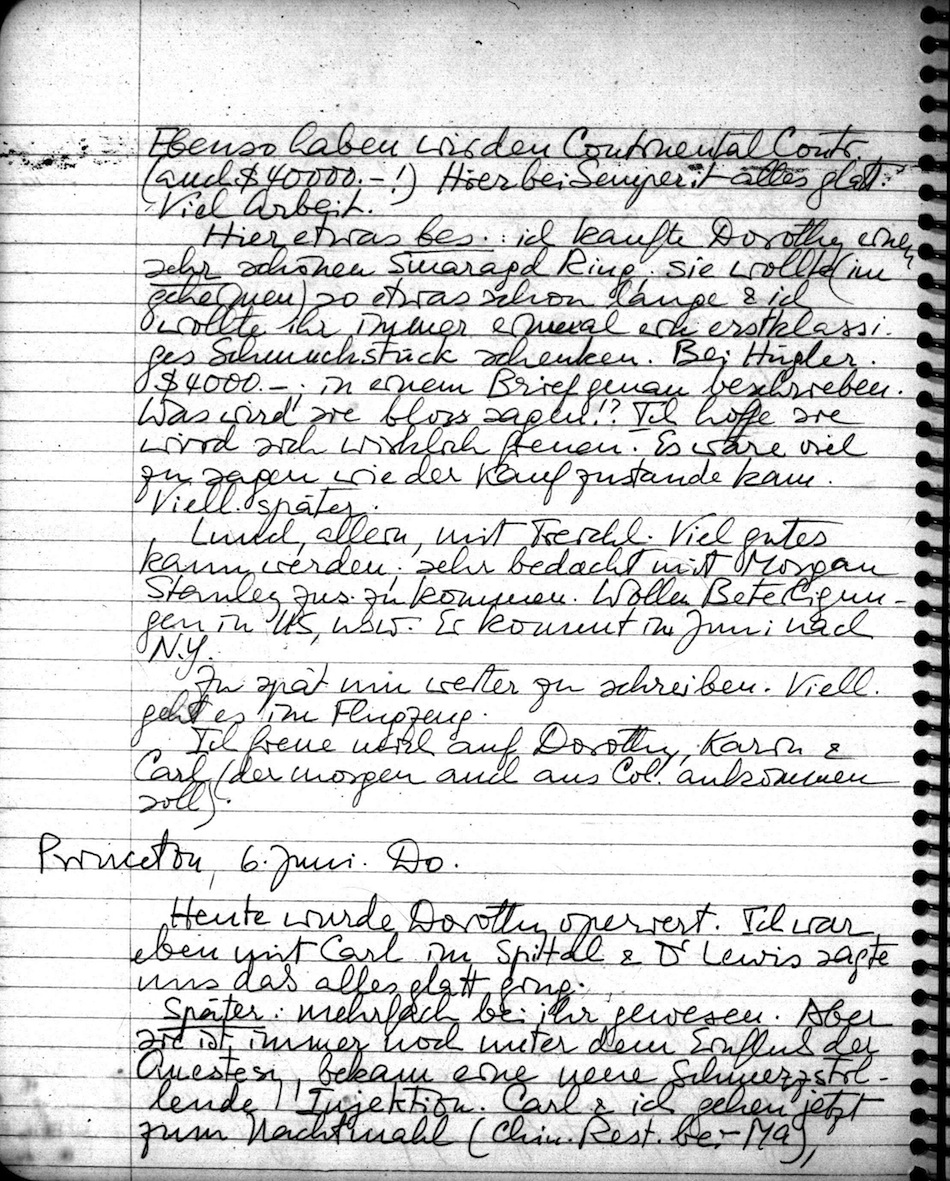 Ebenso haben wir den Continental Contr.
(auch $40000.-!) Hier bei Semperit alles glatt.
Viel Arbeit.
Hier etwas bes.: ich kaufte Dorothy einen
sehr schönen Smaragd Ring. Sie wollte (im
geheimen) so etwas schon lange & ich
wollte ihr immer einmal ein erstklassi-
ges Schmuckstück schenken. Bei Hügler.
$4000.-; in einem Brief genau beschrieben.
Was wird sie bloss sagen!? Ich hoffe sie
wird sich wirklich freuen. Es wäre viel
zu sagen wie der Kauf zustande kam.
Viell. später.
Lunch, allein, mit Treichl. Viel gutes
kann werden; sehr bedacht mit Morgan
Stanley zus. zu kommen. Wollen Beteiligun-
gen in US, usw. Er kommt im Juni nach
N.Y.
Zu spät um weiter zu schreiben. Viell.
geht es im Flugzeug.
Ich freue mich auf Dorothy, Karin &
Carl (der morgen auch aus Col. ankommen
soll).
Princeton, 6. Juni. Do.
Heute wurde Dorothy operiert. Ich war
eben mit Carl im Spital & Dr Lewis sagte
uns das alles glatt ging.
Später: mehrfach bei ihr gewesen. Aber
sie ist immer noch unter dem Einfluss der
Anestesi, bekam eine neue Schmerzstil-
lende Injektion. Carl & ich gehen jetzt
zum Nachtmahl (Chin. Rest. bei Ma),